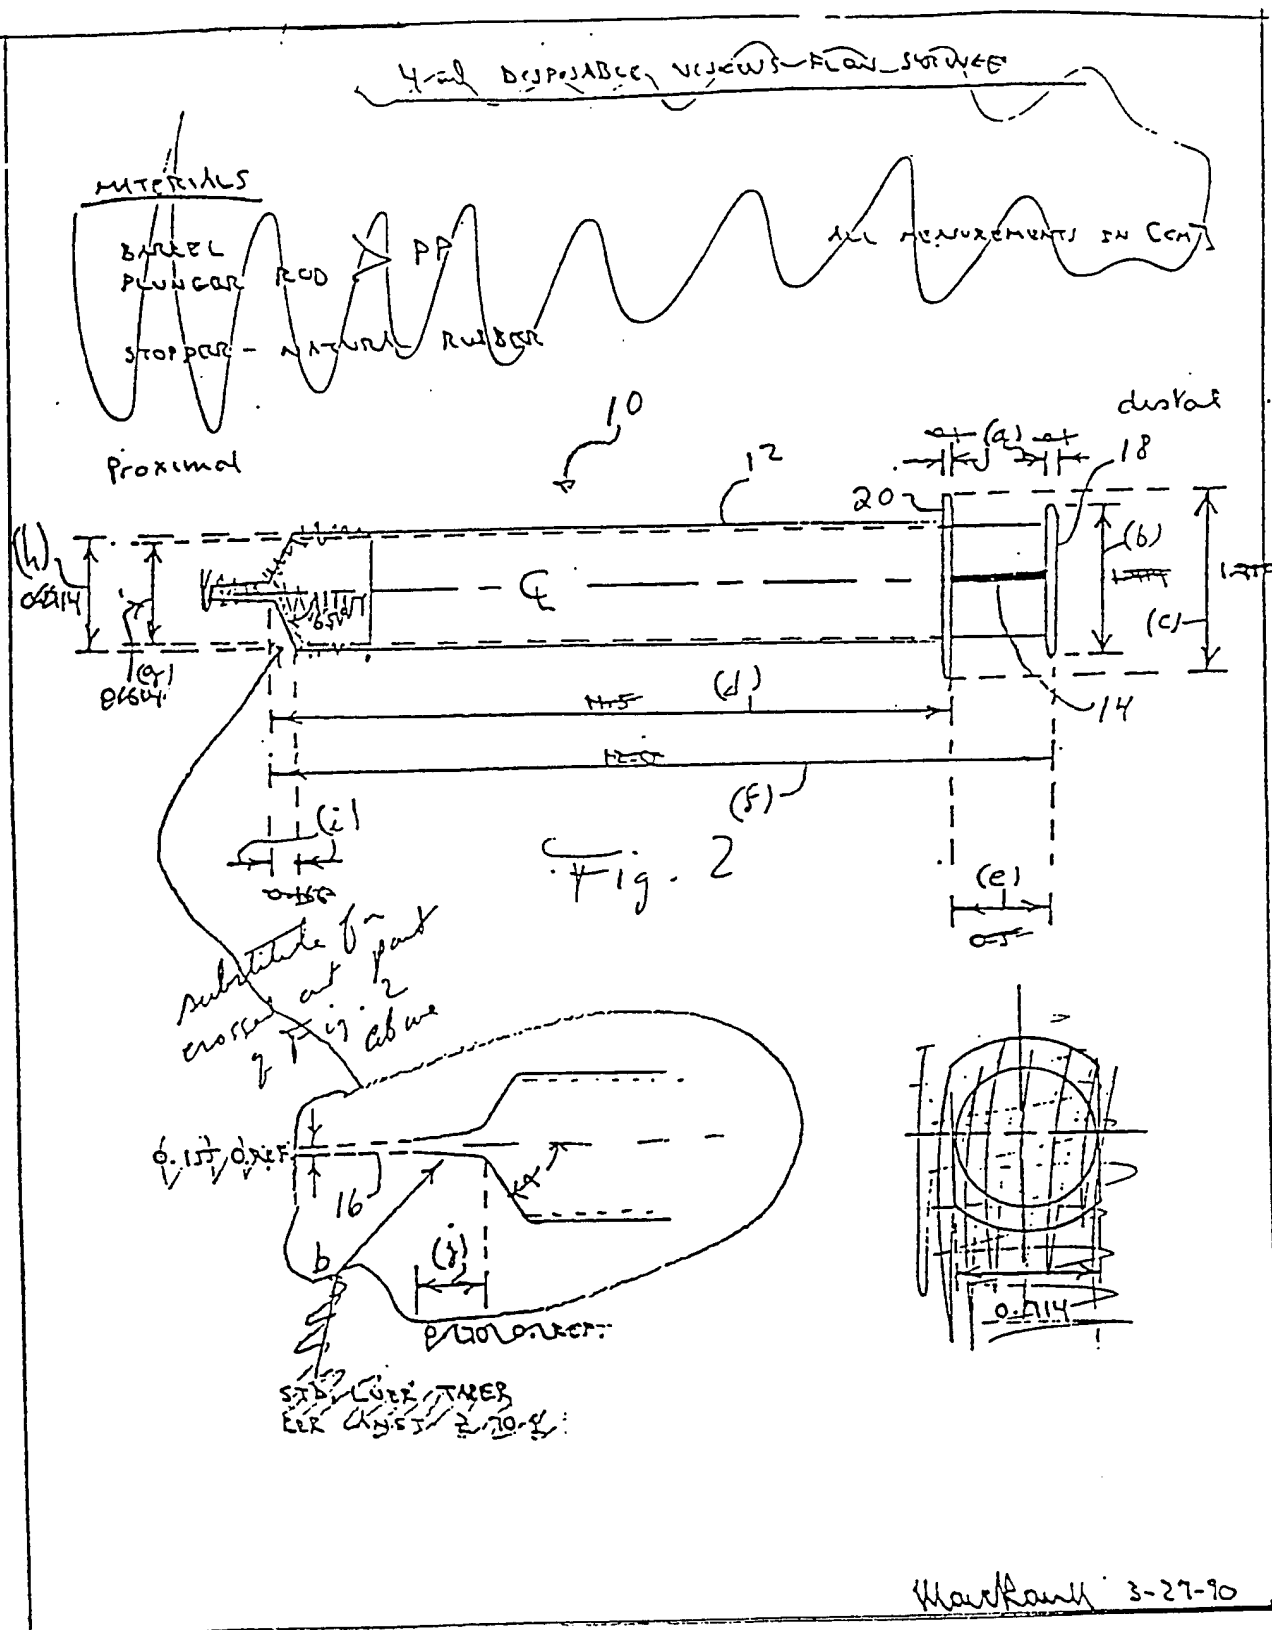 4-ml DISPOSABLE, VISCOUS-FLOW SYRINGE
MATERIALS
BARREL
PLUNGER ROD > PP
STOPPER - NATURAL RUBBER
ALL MEASUREMENTS IN [CM]
10
distal
Proximal
(a)
18
12
20
(h)
(b)
(c)
(g)
14
11.5 (d)
12.5
(f)
(i)
Fig. 2
(e)
0.5
substitute for
crossed out part
of Fig. 2
above
0.155 0 REF.
16
α
b
(j)
0.714
STD. LUER TAPER
PER ANSI Z-70.1
3-27-90